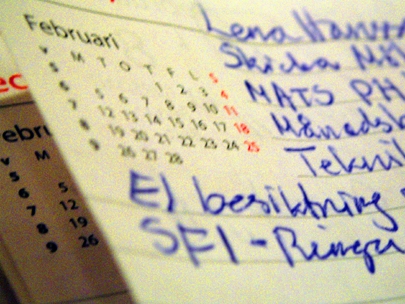 Februari
v M T O T F L S
5 1 2 3 4
6 5 6 7 8 9 10 11
7 12 13 14 15 16 17 18
8 19 20 21 22 23 24 25
9 26 27 28
Lena
Skicka
MATS PH
Månads
Teknik
El besiktning
SFI - Ringa
ec
ebru
v M
5
6 5
7 12
8 19
9 26